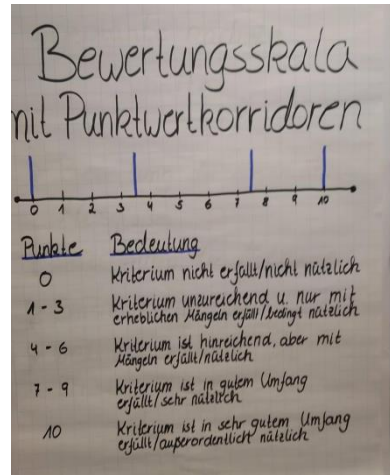 Bewertungsskala
mit Punktwertkorridoren
0 1 2 3 4 5 6 7 8 9 10
Punkte Bedeutung
0 Kriterium nicht erfüllt/nicht nützlich
1 - 3 Kriterium unzureichend u. nur mit
erheblichen Mängeln erfüllt/bedingt nützlich
4 - 6 Kriterium ist hinreichend, aber mit
Mängeln erfüllt/nützlich
7 - 9 Kriterium ist in gutem Umfang
erfüllt/sehr nützlich
10 Kriterium ist in sehr gutem Umfang
erfüllt/außerordentlich nützlich